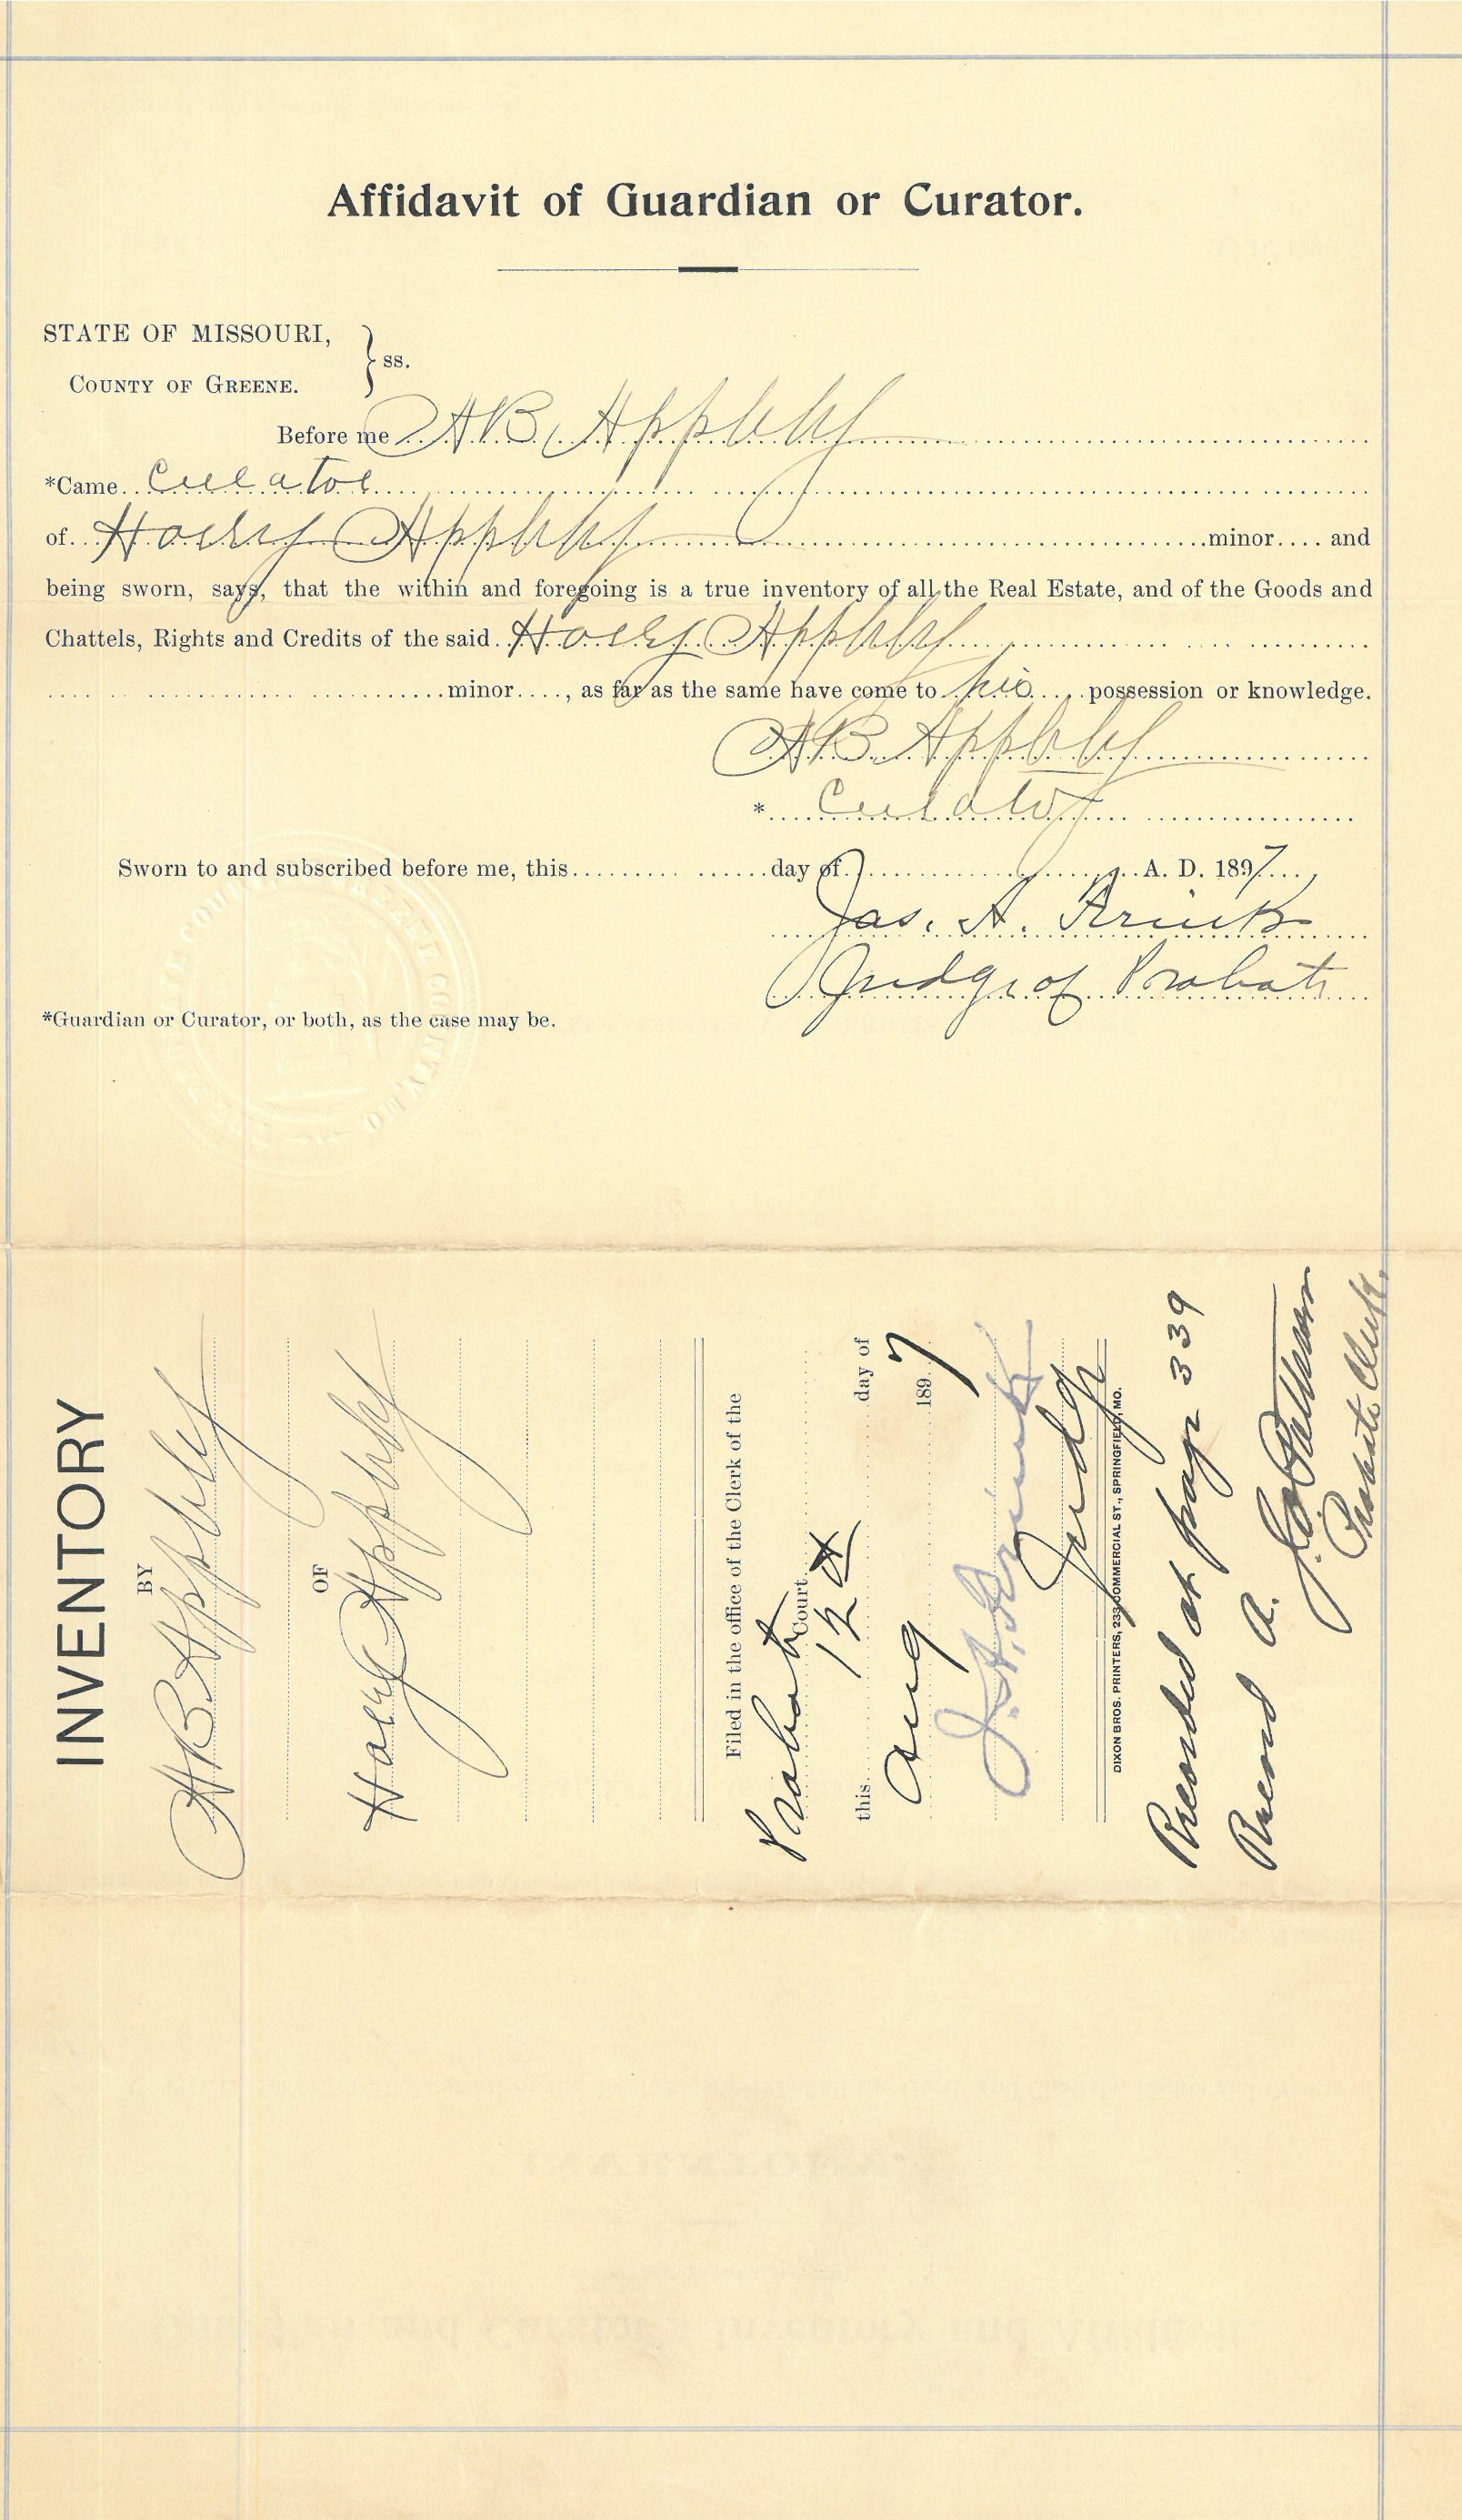 Affidavit of Guardian or Curator.
STATE OF MISSOURI,
COUNTY OF GREENE. } ss.
Before me A B Appleby
*Came Curator
of Harry Appleby minor and
being sworn, says, that the within and foregoing is a true inventory of all the Real Estate, and of the Goods and
Chattels, Rights and Credits of the said Harry Appleby
minor, as far as the same have come to his possession or knowledge.
A B Appleby
* Curator
Sworn to and subscribed before me, this day of A. D. 1897
Jas. A.
Judge of Probate
*Guardian or Curator, or both, as the case may be.
INVENTORY
BY
A B Appleby
OF
Harry Appleby
Filed in the office of the Clerk of the
Probate Court
this 12 day of
Aug 1897
J. A.
Judge
DIXON BROS. PRINTERS, 233 COMMERCIAL ST., SPRINGFIELD, MO.
Recorded at page 339
Record A.
Probate Clerk.